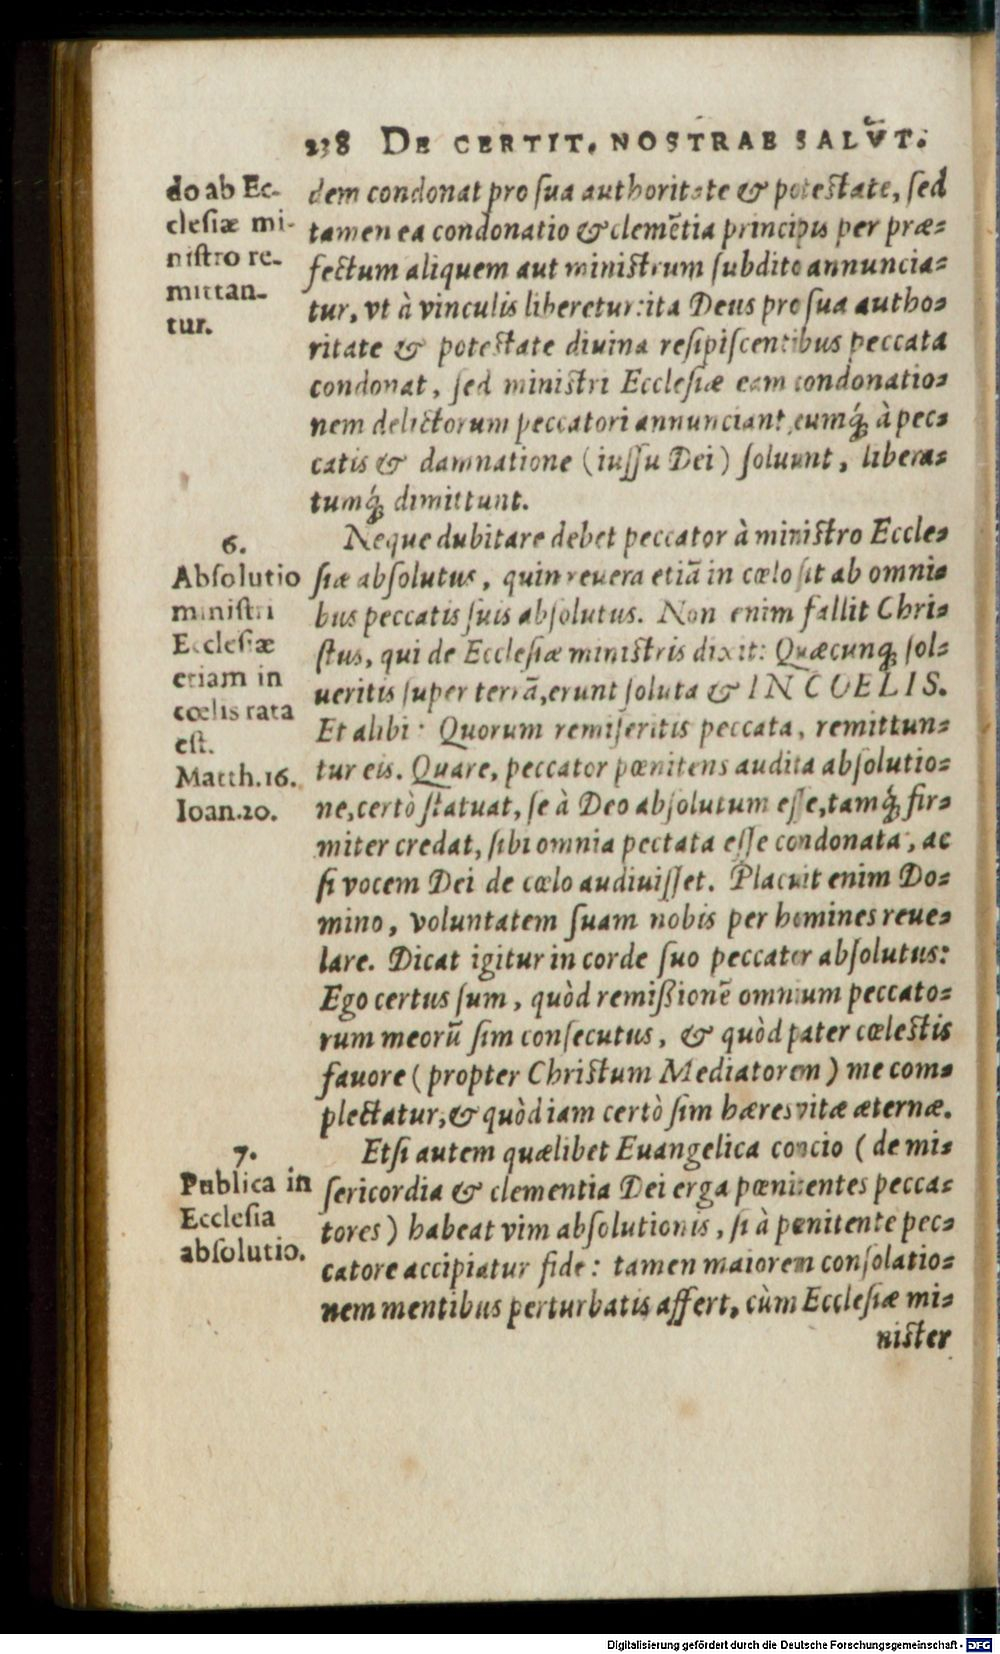 238 DE CERTIT. NOSTRAE SALVT.
do ab Ec-
clesiæ mi-
nistro re-
mittan-
tur.
dem condonat pro sua authoritate & potestate, sed
tamen ea condonatio & clemẽtia principis per præ-
fectum aliquem aut ministrum subdito annuncia-
tur, vt à vinculis liberetur: ita Deus pro sua autho-
ritate & potestate diuina resipiscentibus peccata
condonat, sed ministri Ecclesiæ eam condonatio-
nem delictorum peccatori annunciant, eumq́; à pec-
catis & damnatione (iussu Dei) soluunt, libera-
tumq́; dimittunt.
6.
Absolutio
ministri
Ecclesiæ
etiam in
cœlis rata
est.
Matth.16.
Ioan.20.
Neque dubitare debet peccator à ministro Eccle-
siæ absolutus, quin reuera etiã in cœlo sit ab omni-
bus peccatis suis absolutus. Non enim fallit Chri-
stus, qui de Ecclesiæ ministris dixit: Quæcunq; sol-
ueritis super terrã, erunt soluta & IN COELIS.
Et alibi: Quorum remiseritis peccata, remittun-
tur eis. Quare, peccator pœnitens audita absolutio-
ne, certò statuat, se à Deo absolutum esse, tamq́; fir-
miter credat, sibi omnia pectata esse condonata, ac
si vocem Dei de cœlo audiuisset. Placuit enim Do-
mino, voluntatem suam nobis per homines reue-
lare. Dicat igitur in corde suo peccator absolutus:
Ego certus sum, quòd remißionẽ omnium peccato-
rum meorũ sim consecutus, & quòd pater cœlestis
fauore (propter Christum Mediatorem) me com-
plectatur, & quòd iam certò sim hæres vitæ æternæ.
7.
Publica in
Ecclesia
absolutio.
Etsi autem quælibet Euangelica concio (de mi-
sericordia & clementia Dei erga pœnitentes pecca-
tores) habeat vim absolutionis, si à pœnitente pec-
catore accipiatur fide: tamen maiorem consolatio-
nem mentibus perturbatis affert, cùm Ecclesiæ mi-
nister
Digitalisierung gefördert durch die Deutsche Forschungsgemeinschaft - DFG